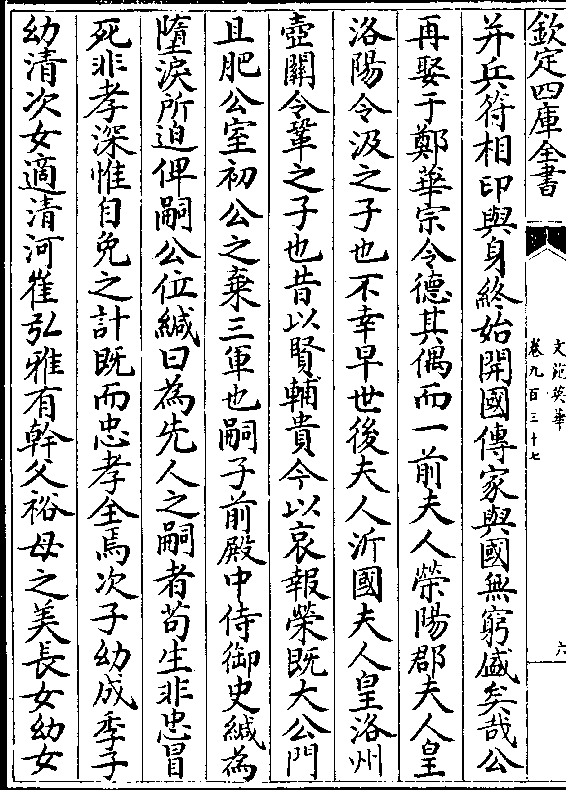 欽定四庫全書
文苑英華
卷九百三十七
六
并兵符相印與身終始開國傳家與國無窮盛矣哉公
再娶于鄭華宗令德其偶而一前夫人滎陽郡夫人皇
洛陽令汲之子也不幸早世後夫人沂國夫人皇洛州
壺關令鞏之子也昔以賢輔貴今以哀報榮既大公門
且肥公室初公之棄三軍也嗣子前殿中侍御史緘為
墮淚所迫俾嗣公位緘曰為先人之嗣者苟生非忠冒
死非孝深惟自免之計既而忠孝全焉次子幼成季子
幼清次女適清河崔弘雅有幹父裕母之美長女幼女